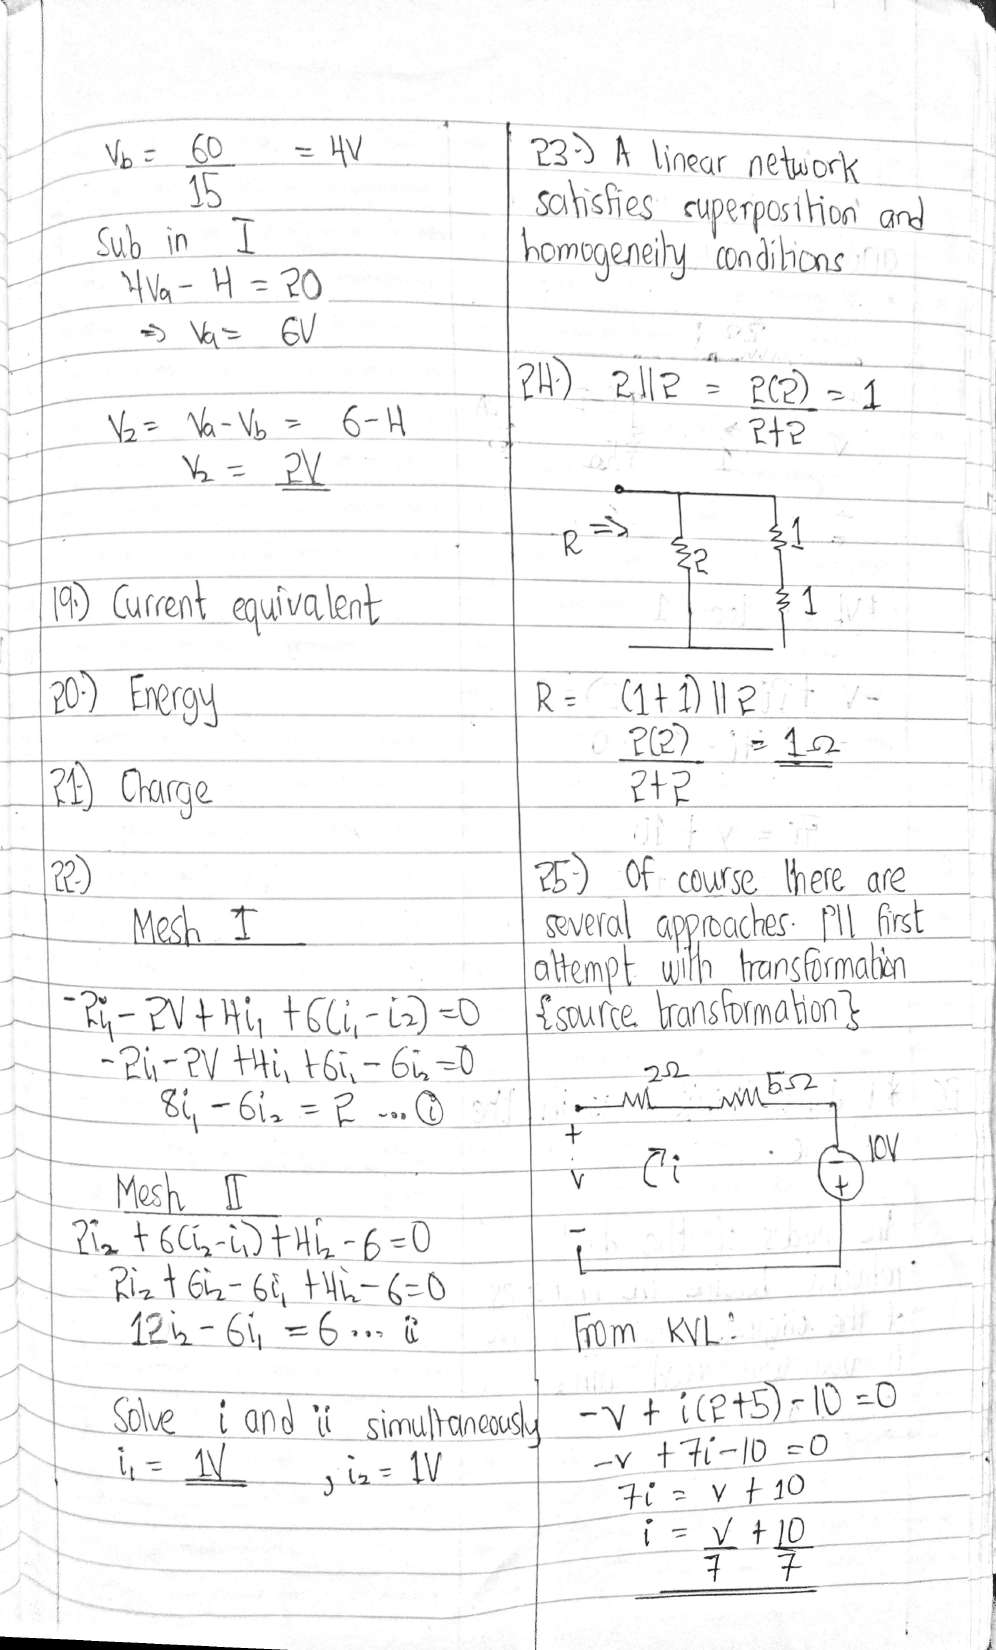 Vb = 60/15 = 4V
Sub in I
4Va - 4 = 20
⇒ Va = 6V
V2 = Va - Vb = 6 - 4
V2 = 2V
19.) Current equivalent
20.) Energy
21.) Charge
22.)
Mesh I
-2i1 - 2V + 4i1 + 6(i1 - i2) = 0
-2i1 - 2V + 4i1 + 6i1 - 6i2 = 0
8i1 - 6i2 = 2 ... i
Mesh II
2i2 + 6(i2 - i1) + 4i2 - 6 = 0
2i2 + 6i2 - 6i1 + 4i2 - 6 = 0
12i2 - 6i1 = 6 ... ii
Solve i and ii simultaneously
i1 = 1V , i2 = 1V
23.) A linear network
satisfies superposition and
homogeneity conditions
24.) 2||2 = 2(2)/2+2 = 1
R ⇒ 2 1
1
R = (1+1) || 2
2(2)/2+2 = 1Ω
25.) Of course there are
several approaches. I'll first
attempt with transformation
{source transformation}
2Ω 5Ω
+
v i 10V
- +
-
From KVL:
-v + i(2+5) - 10 = 0
-v + 7i - 10 = 0
7i = v + 10
i = v/7 + 10/7